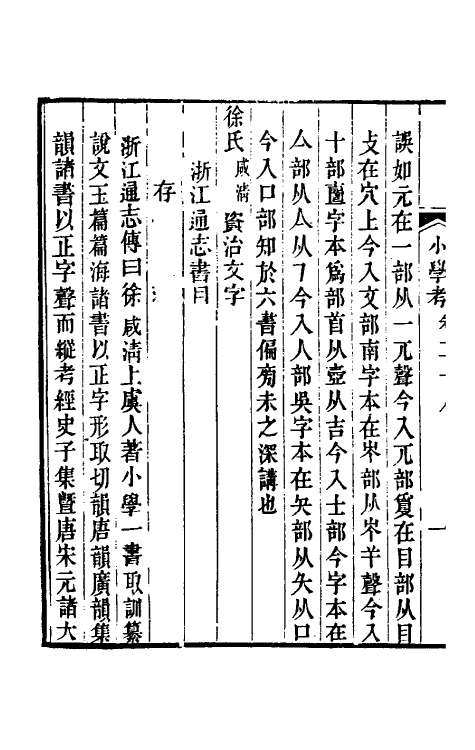 小學考 卷二十八 一
誤如元在一部从一兀聲今入兀部夐在目部从目
攴在穴上今入文部南字本在𣎵部从𣎵𢆉聲今入
十部壼字本爲部首从壺从吉今入士部今字本在
亼部从亼从㇇今入人部吳字本在夨部从夨从口
今入口部知於六書偏旁未之深講也
徐氏咸清資治文字
浙江通志書目
存
浙江通志傳曰徐咸清上虞人著小學一書取訓纂
說文玉篇篇海諸書以正字形取切韻唐韻廣韻集
韻諸書以正字聲而縱考經史子集曁唐宋元諸大